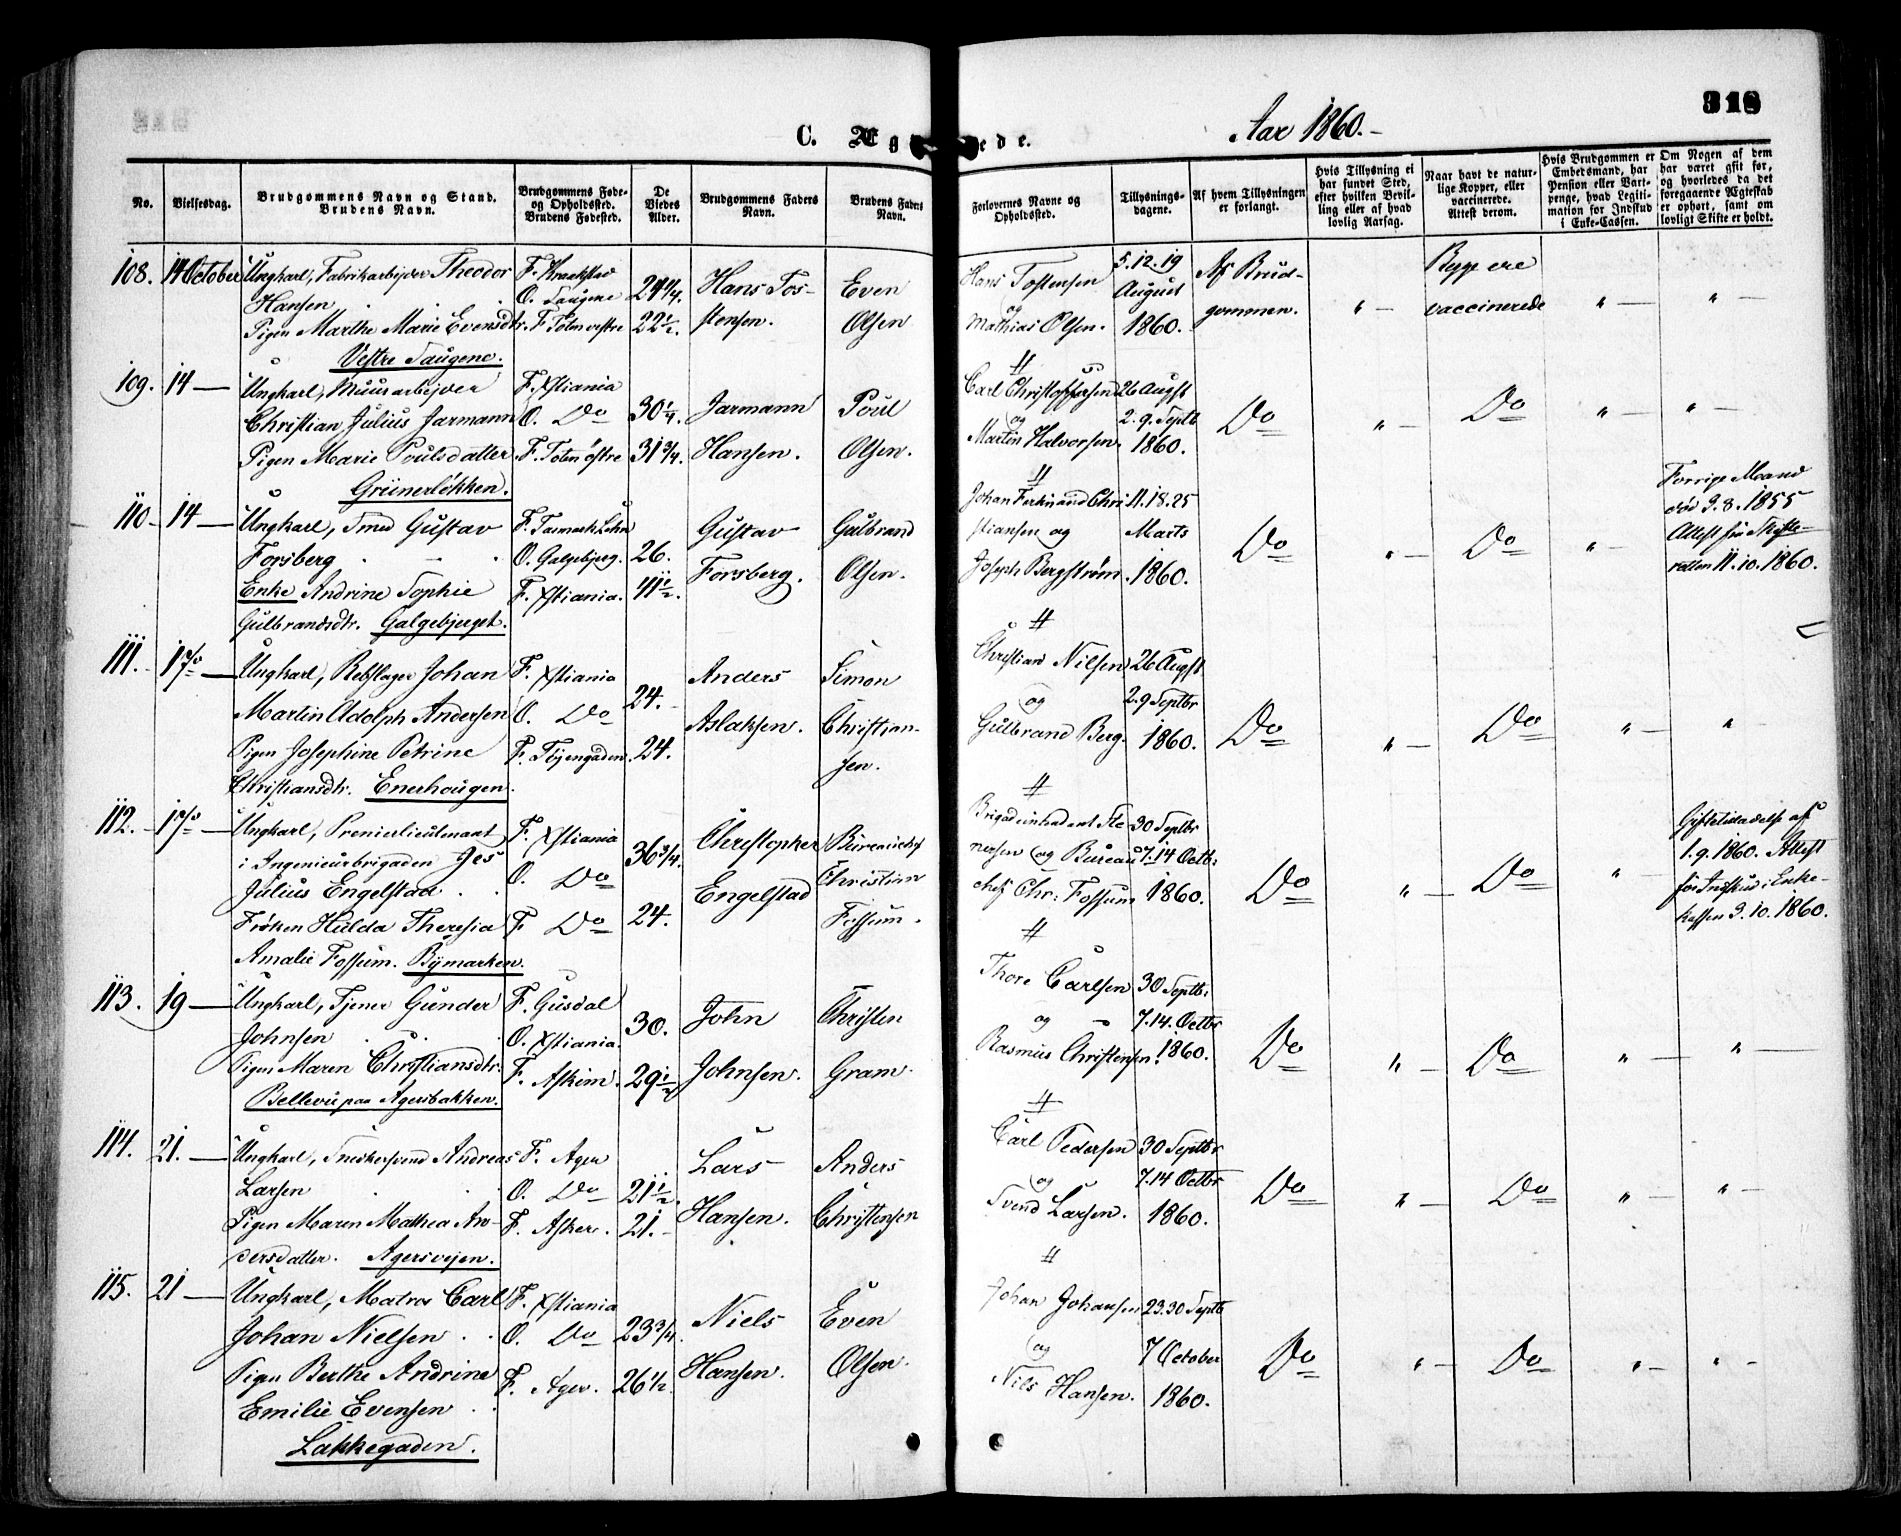 318
C. Ægtede.
Aar 1860.-
No.
Vielsesdag.
Brudgommens Navn og Stand.
Brudens Navn.
Brudgommens Føde-
og Opholdssted.
Brudens Fødested.
De
Viedes
Alder.
Brudgommens Faders
Navn.
Brudens Faders
Navn.
Forlovernes Navne og
Opholdssted.
Tillysnings-
dagene.
Af hvem Tillysningen
er forlangt.
Hvis Tillysning ei
har fundet Sted,
efter hvilken Bevil-
ling eller af hvad
lovlig Aarsag.
Naar havt de natur-
lige Kopper, eller
vaccinerede.
Attest derom.
Hvis Brudgommen er
Embedsmand, har
Pension eller Vart-
penge, hvad Legiti-
mation for Indskud
i Enke-Cassen.
Om Nogen af dem
har været gift før,
og hvorledes da det
foregaaende Ægteskab
er ophørt, samt om
lovligt Skifte er holdt.
108. 14 October Ungkarl, Fabrikarbejder Theodor
Hansen
Pigen Marthe Marie Evensdtr.
Vestre Saugene.
O. Saugene
F. Toten vestre
24 3/4.
22 1/2.
Hans Tos-
stensen.
Even
Olsen
Hans Tostensen
og
Mathias Olsen.
5. 12. 19
August
1860.
Af Brud-
gommen.
" —
Begge ere
vaccinerede
" —
" —
109. 14 — Ungkarl, Muurarbejder
Christian Julius Jarmann
Pigen Marie Poulsdatter
Grünerløkken.
F. Xstiania
O. Do
F. Toten østre
30 1/4.
31 3/4.
Jarmann
Hansen.
Poul
Olsen.
Carl Christoffersen
og
Martin Halvorsen.
26 Augst
2. 9. Septb
1860.
Do
" —
Do
" —
" —
110 14 — Ungkarl, Smed Gustav
Forsberg
Enke Andrine Sophie
Gulbrandsdtr. Galgebjerget.
O. Galgebjerg.
F. Xstiania.
26.
41 1/2.
Gustav
Forsberg.
Gulbrand
Olsen.
Johan Ferdinand Chri-
stiansen og
Joseph Bergstrøm.
11. 18. 25
Marts
1860.
Do
" —
Do
" —
Forrige Mand
død 9. 8. 1855
Attest fra Skifte-
retten 11. 10. 1860.
111. 17/10 — Ungkarl, Rebslager Johan
Martin Adolph Andersen
Pigen Josephine Petrine
Christiansdtr. Enerhougen.
F. Xstiania
O. Do
F. Tøjengaden.
24.
24.
Anders
Aslaksen.
Simon
Christian-
sen.
Christian Nilsen
og
Gulbrand Berg.
26 Augst
2. 9 Septbr
1860.
Do
" —
Do
" —
"
112. 17/10 — Ungkarl, Premierlieutenant
i Ingenieurbrigaden Jes
Julius Engelstad
Frøken Hulda Theresia
Amalie Fossum. Bymarken.
F. Xstiania
O. Do
F. Do
36 3/4.
24.
Christopher
Engelstad
Bureauchef
Christian
Fossum.
Brigadeintendant Ste-
nersen og Bureau-
chef Chr: Fossum
30 Septbr
7. 14 Octb:
1860.
Do
" —
Do
" —
Giftetilladelse af
1. 9. 1860. Attest
for Indskud i Enke-
kassen 9. 10. 1860.
113. 19 — Ungkarl, Tjener Gunder
Johnsen
Pigen Maren Christiansdtr.
Bellevue paa Agersbakken.
F. Gusdal
O. Xstiania.
F. Askim.
30.
29 1/2
John
Johnsen.
Christen
Gram.
Thore Carlsen
og
Rasmus Christensen.
30 Septb:
7. 14. Octbr
1860.
Do
" —
Do
" —
" —
114. 21. — Ungkarl, Snedkersvend Andreas
Larsen
Pigen Maren Mathea An-
dersdatter. Agersvejen.
F. Ager
O. Do
F. Asker.
21 1/2.
21.
Lars
Hansen.
Anders
Christensen
Carl Pedersen
og
Svend Larsen.
30 Septbr
7. 14 Octbr
1860.
Do
" —
Do
" —
" —
115. 21 — Ungkarl, Matros Carl
Johan Nielsen
Pigen Berthe Andrine
Emilie Evensen
Lakkegaden.
F. Xstiania
O. Do
F. Ager.
23 3/4.
26 1/2.
Niels
Hansen.
Even
Olsen.
Johan Johansen
og
Nils Hansen.
23. 30 Septb
7 October
1860.
Do
" —
Do
" —
" —